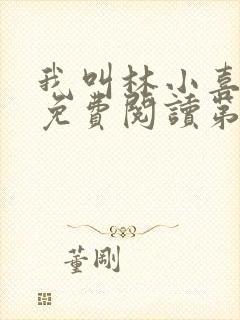 我叫林小喜
免費閱讀第
董剛